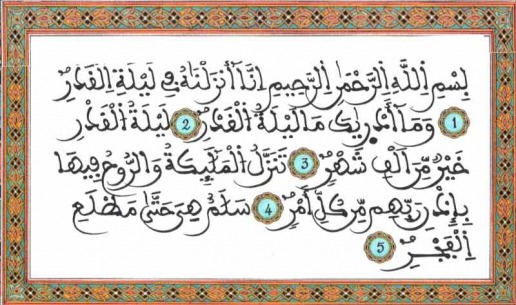 بِسْمِ اِللَّهِ اِلرَّحْمَٰنِ اِلرَّحِيمِ إِنَّا أَنزَلْنَٰهُ فِي لَيْلَةِ اِلْقَدْرِ
1 وَمَا أَدْرِيكَ مَا لَيْلَةُ اُلْقَدْرِ 2 لَيْلَةُ اُلْقَدْرِ
خَيْرٌ مِّنَ اَلْفِ شَهْرٍ 3 تَنَزَّلُ اُلْمَلَٰٓئِكَةُ وَالرُّوحُ فِيهَا
بِإِذْنِ رَبِّهِم مِّن كُلِّ أَمْرٍ 4 سَلَٰمٌ هِيَ حَتَّىٰ مَطْلَعِ
اِلْفَجْرِ 5